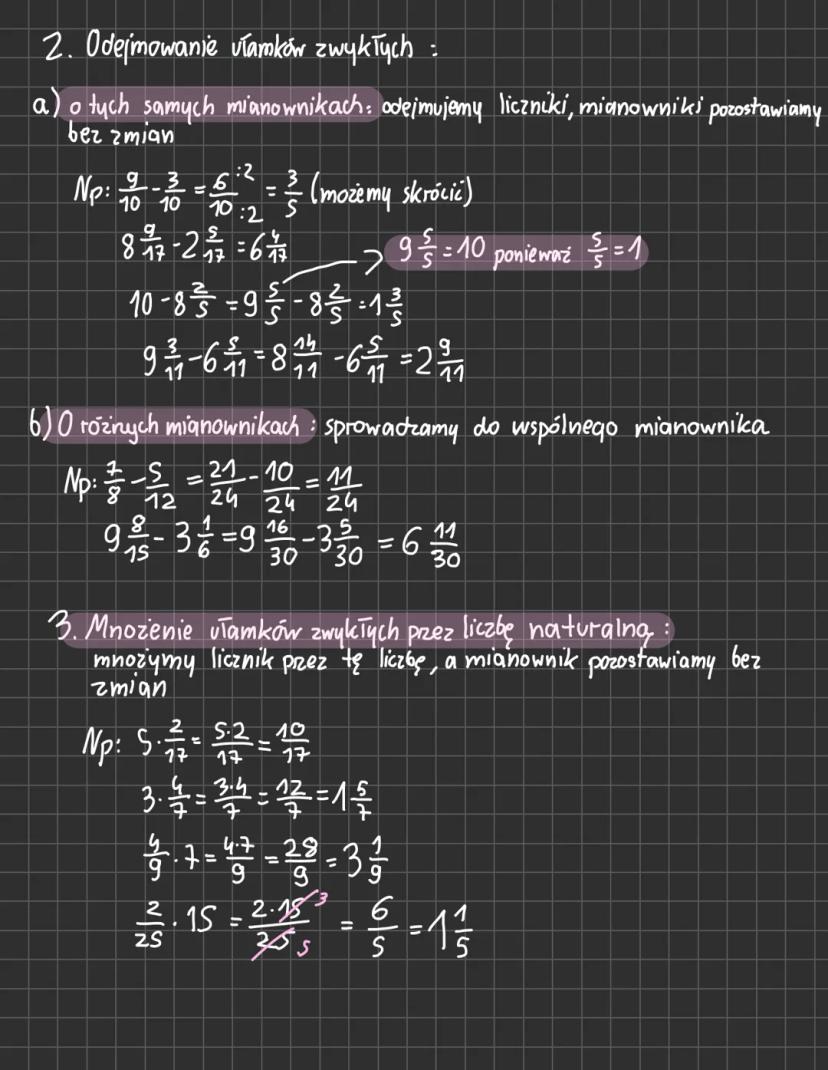 2. Odejmowanie ułamków zwykłych :
a) o tych samych mianownikach: odejmujemy liczniki, mianowniki pozostawiamy
bez zmian
Np: 9/10 - 3/10 = 6/10 :2/:2 = 3/5 (możemy skrócić)
8 9/17 - 2 5/17 = 6 4/17
9 5/5 = 10 ponieważ 5/5 = 1
10 - 8 2/5 = 9 5/5 - 8 2/5 = 1 3/5
9 3/11 - 6 5/11 = 8 14/11 - 6 5/11 = 2 9/11
b) O różnych mianownikach : sprowadzamy do wspólnego mianownika
Np: 7/8 - 5/12 = 21/24 - 10/24 = 11/24
9 8/15 - 3 1/6 = 9 16/30 - 3 5/30 = 6 11/30
3. Mnożenie ułamków zwykłych przez liczbę naturalną :
mnożymy licznik przez tę liczbę, a mianownik pozostawiamy bez
zmian
Np: 5 · 2/17 = 5·2/17 = 10/17
3 · 4/7 = 3·4/7 = 12/7 = 1 5/7
4/9 · 7 = 4·7/9 = 28/9 = 3 1/9
2/25 · 15 = 2·15 3/25 5 = 6/5 = 1 1/5